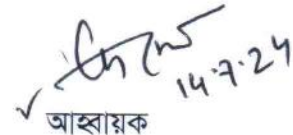 14.7.24
আহ্বায়ক